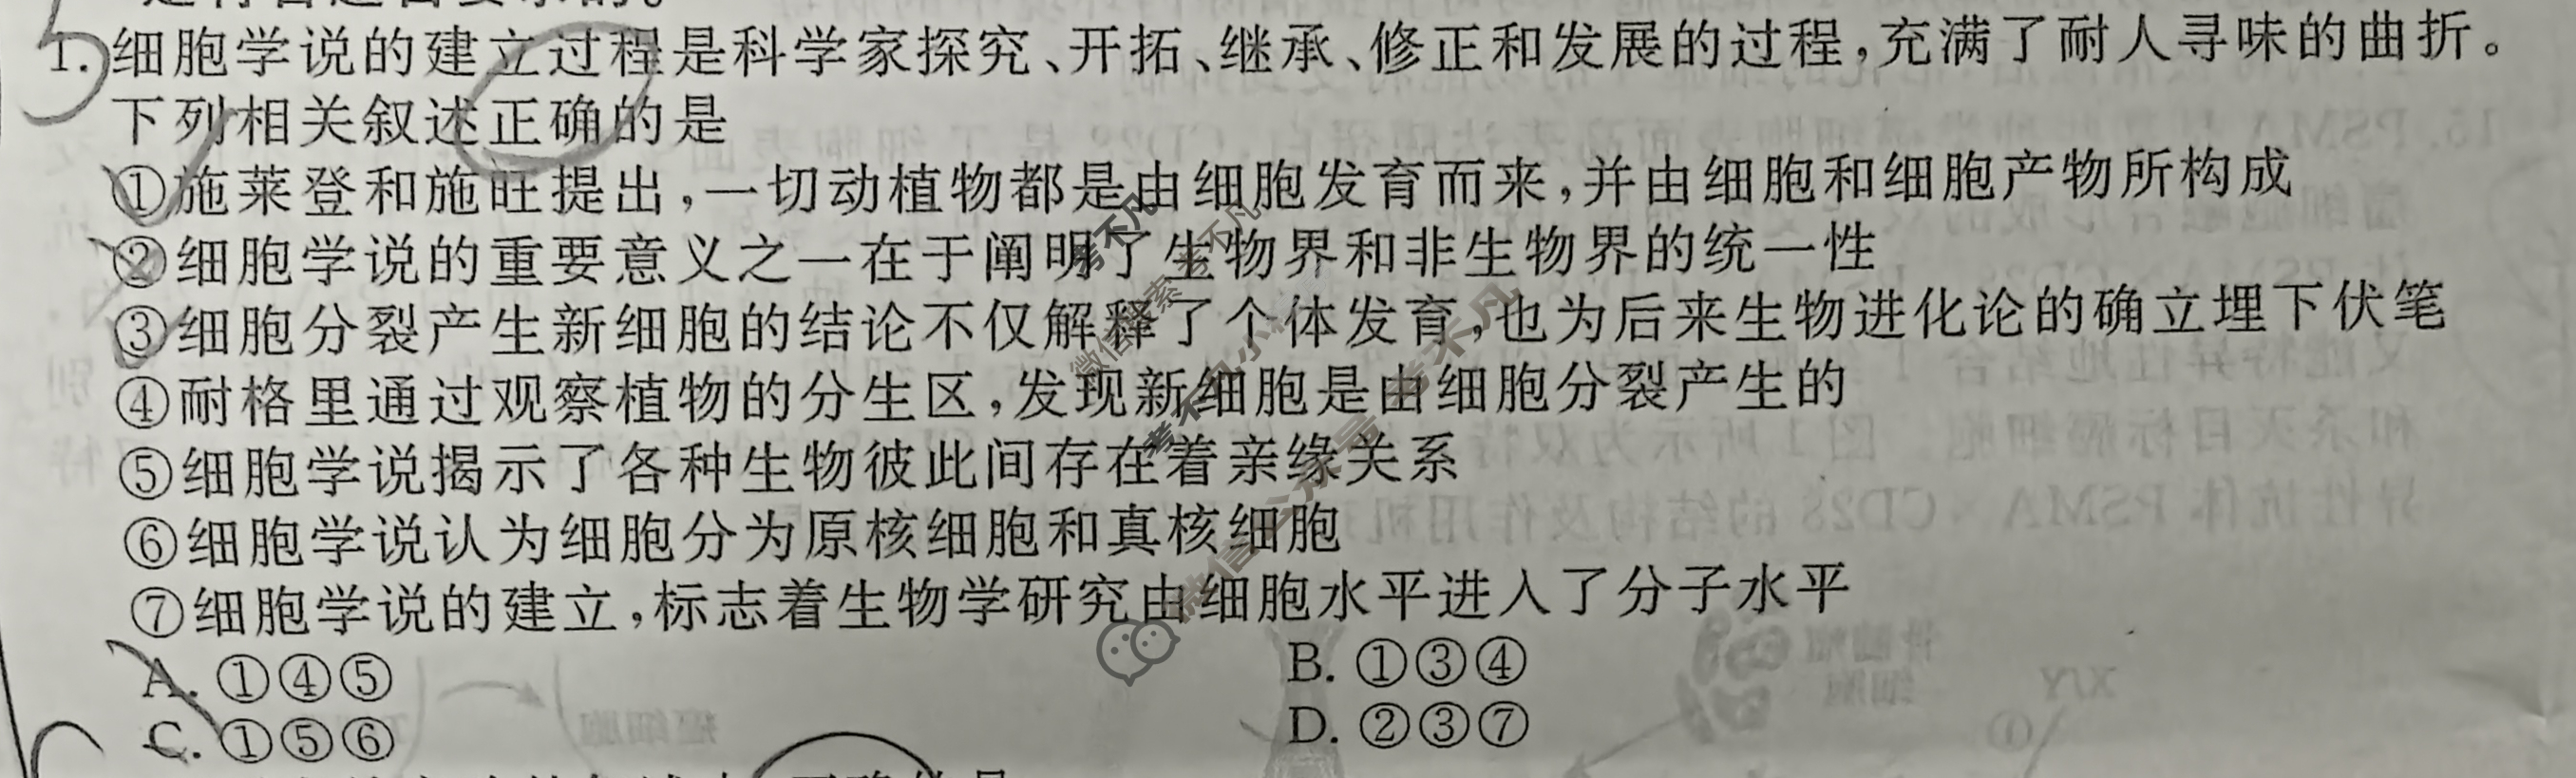 1. 细胞学说的建立过程是科学家探究、开拓、继承、修正和发展的过程,充满了耐人寻味的曲折。
下列相关叙述正确的是
①施莱登和施旺提出,一切动植物都是由细胞发育而来,并由细胞和细胞产物所构成
②细胞学说的重要意义之一在于阐明了生物界和非生物界的统一性
③细胞分裂产生新细胞的结论不仅解释了个体发育,也为后来生物进化论的确立埋下伏笔
④耐格里通过观察植物的分生区,发现新细胞是由细胞分裂产生的
⑤细胞学说揭示了各种生物彼此间存在着亲缘关系
⑥细胞学说认为细胞分为原核细胞和真核细胞
⑦细胞学说的建立,标志着生物学研究由细胞水平进入了分子水平
A. ①④⑤ B. ①③④
C. ①⑤⑥ D. ②③⑦